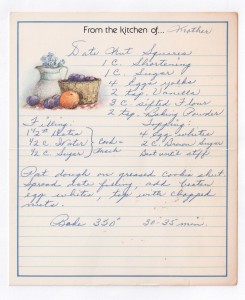 From the kitchen of... Mother
Date Nut Squares
1 C. Shortening
1 C. Sugar
4 eggs yolks
2 tsp. Vanilla
3 C. sifted Flour
2 tsp. Baking Powder
Filling: Topping:
1 # Dates 4 egg whites
1/2 C. Water Cook 2 C. Brown Sugar
1/2 C. Sugar Beat until stiff
Pat dough on greased cookie sheet
Spread date filling, add beaten
egg whites, top with chopped
nuts.
Bake 350° 30-35 min.